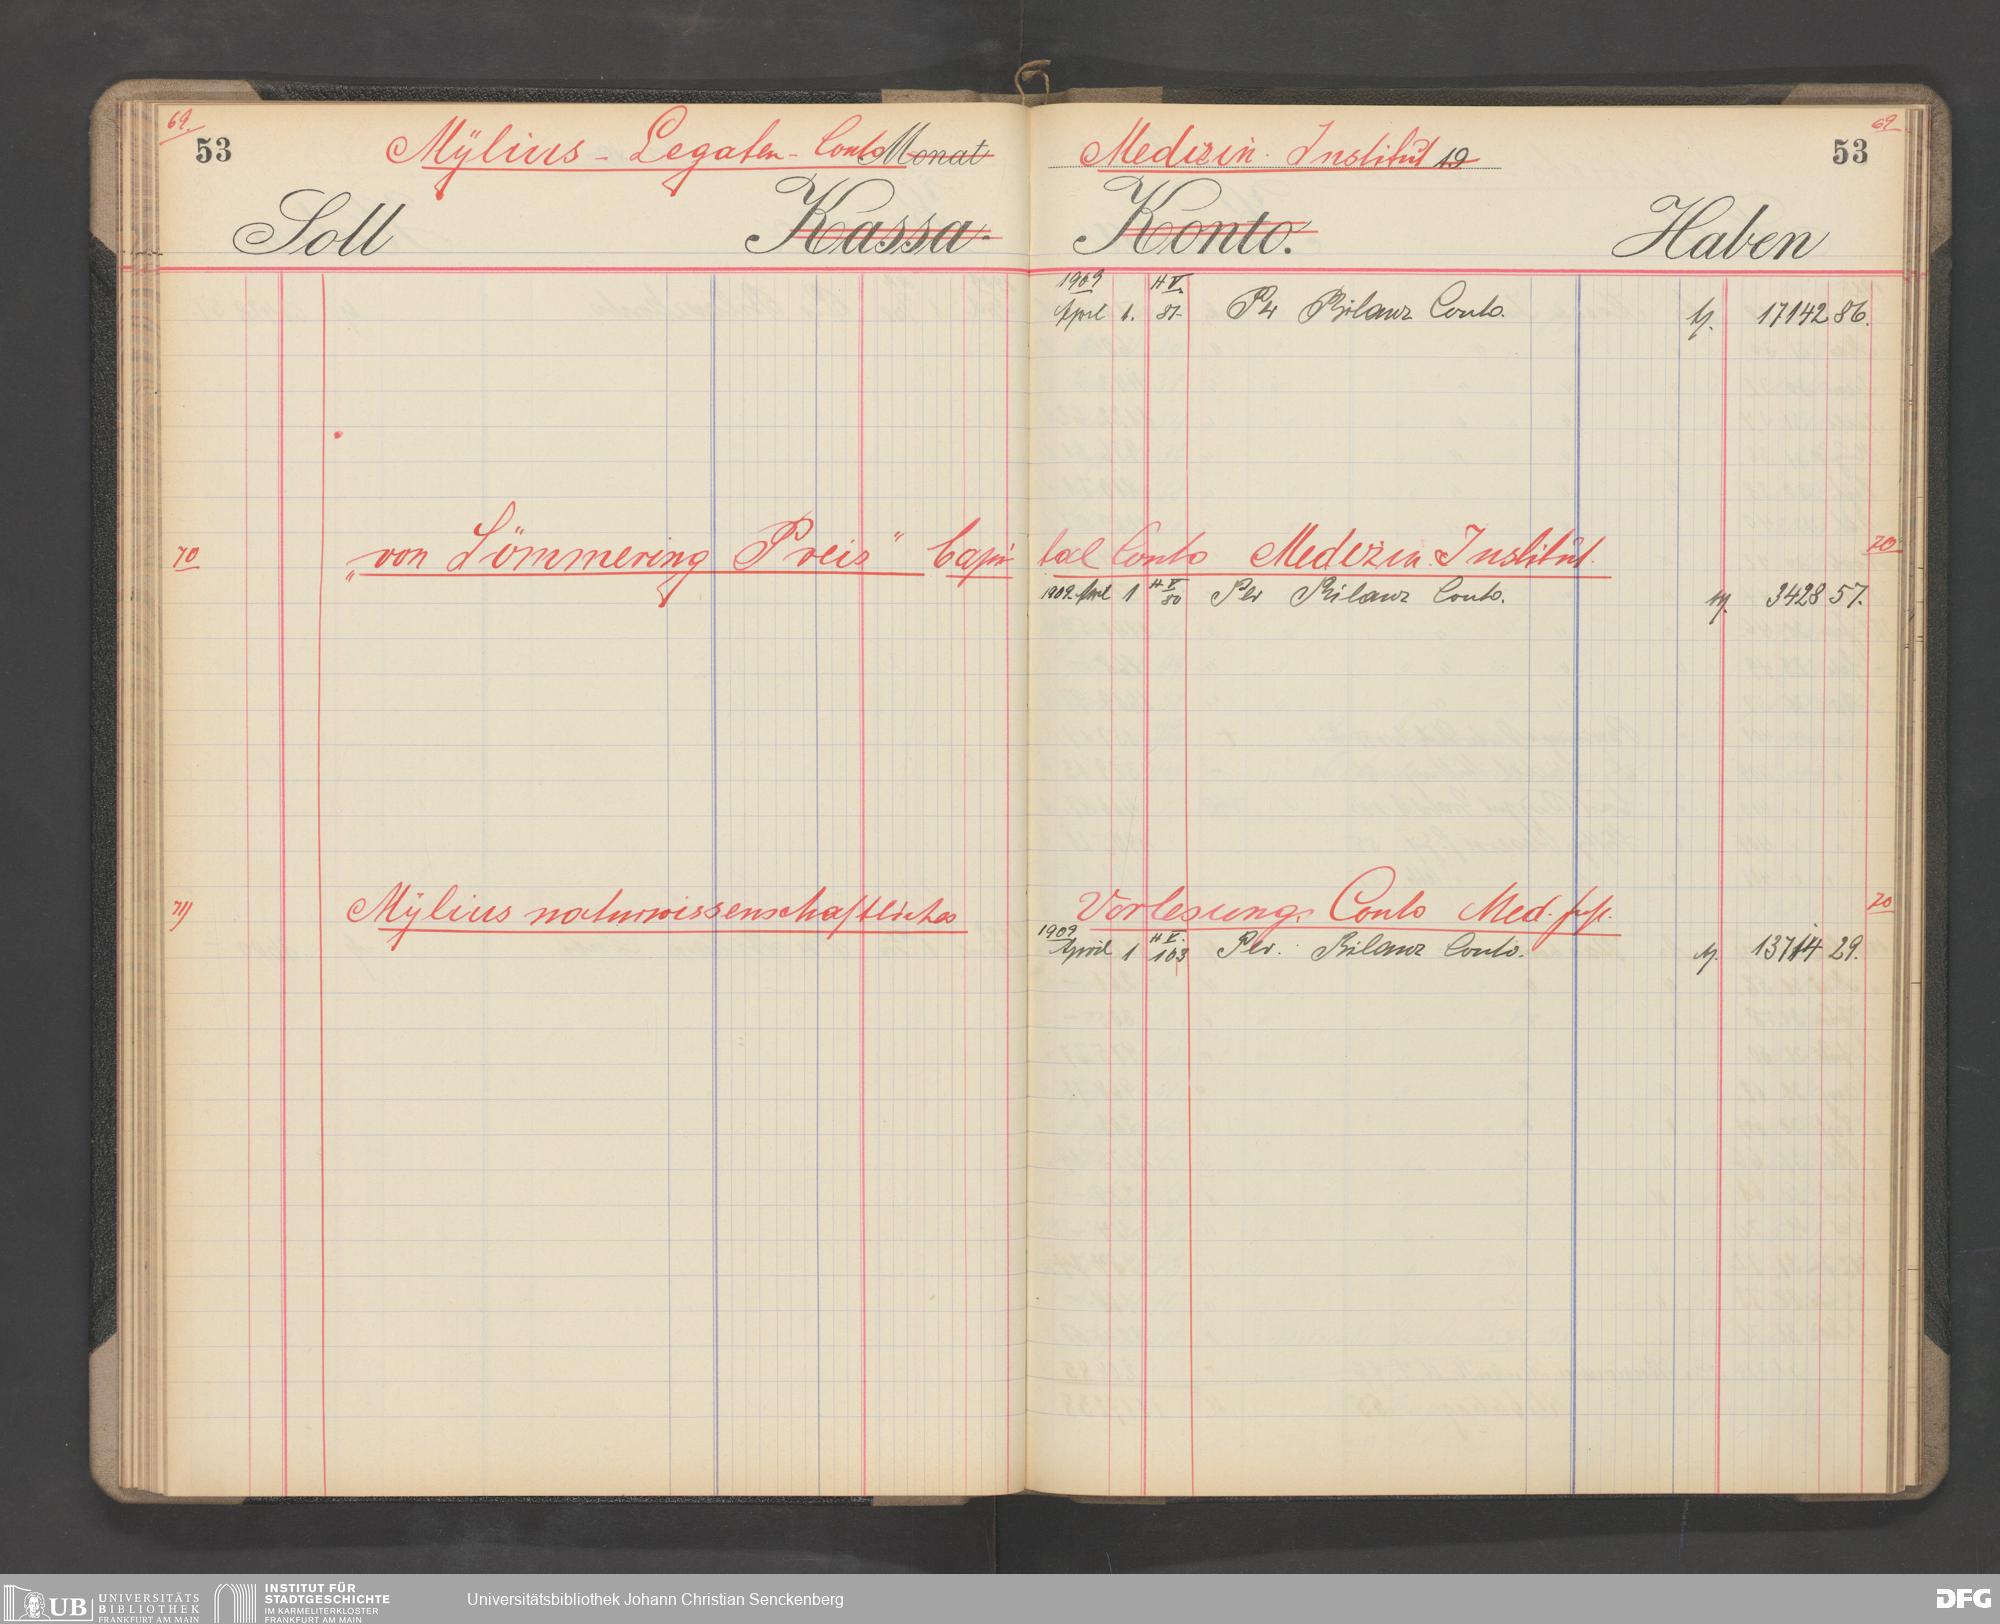 69.
53
Mÿlius - Legaten - Conto Monat
Medizin. Institut 19
69
53
Soll
Kassa-
Konto.
Haben
1909 H V.
April 1. 81. Per Bilanz Conto. M. 17142 86.
70
"von Sömmering Preis" Capital Conto Medizin. Institut.
70
1909 April 1 H V 80 Per Bilanz Conto. M. 3428 57.
71
Mÿlius naturwissenschaftliches Vorlesungs Conto Med.
70
1909 H V.
April 1 103 Per. Bilanz Conto. M. 13714 29.
UB UNIVERSITÄTS
BIBLIOTHEK
FRANKFURT AM MAIN
INSTITUT FÜR
STADTGESCHICHTE
IM KARMELITERKLOSTER
FRANKFURT AM MAIN
Universitätsbibliothek Johann Christian Senckenberg
DFG